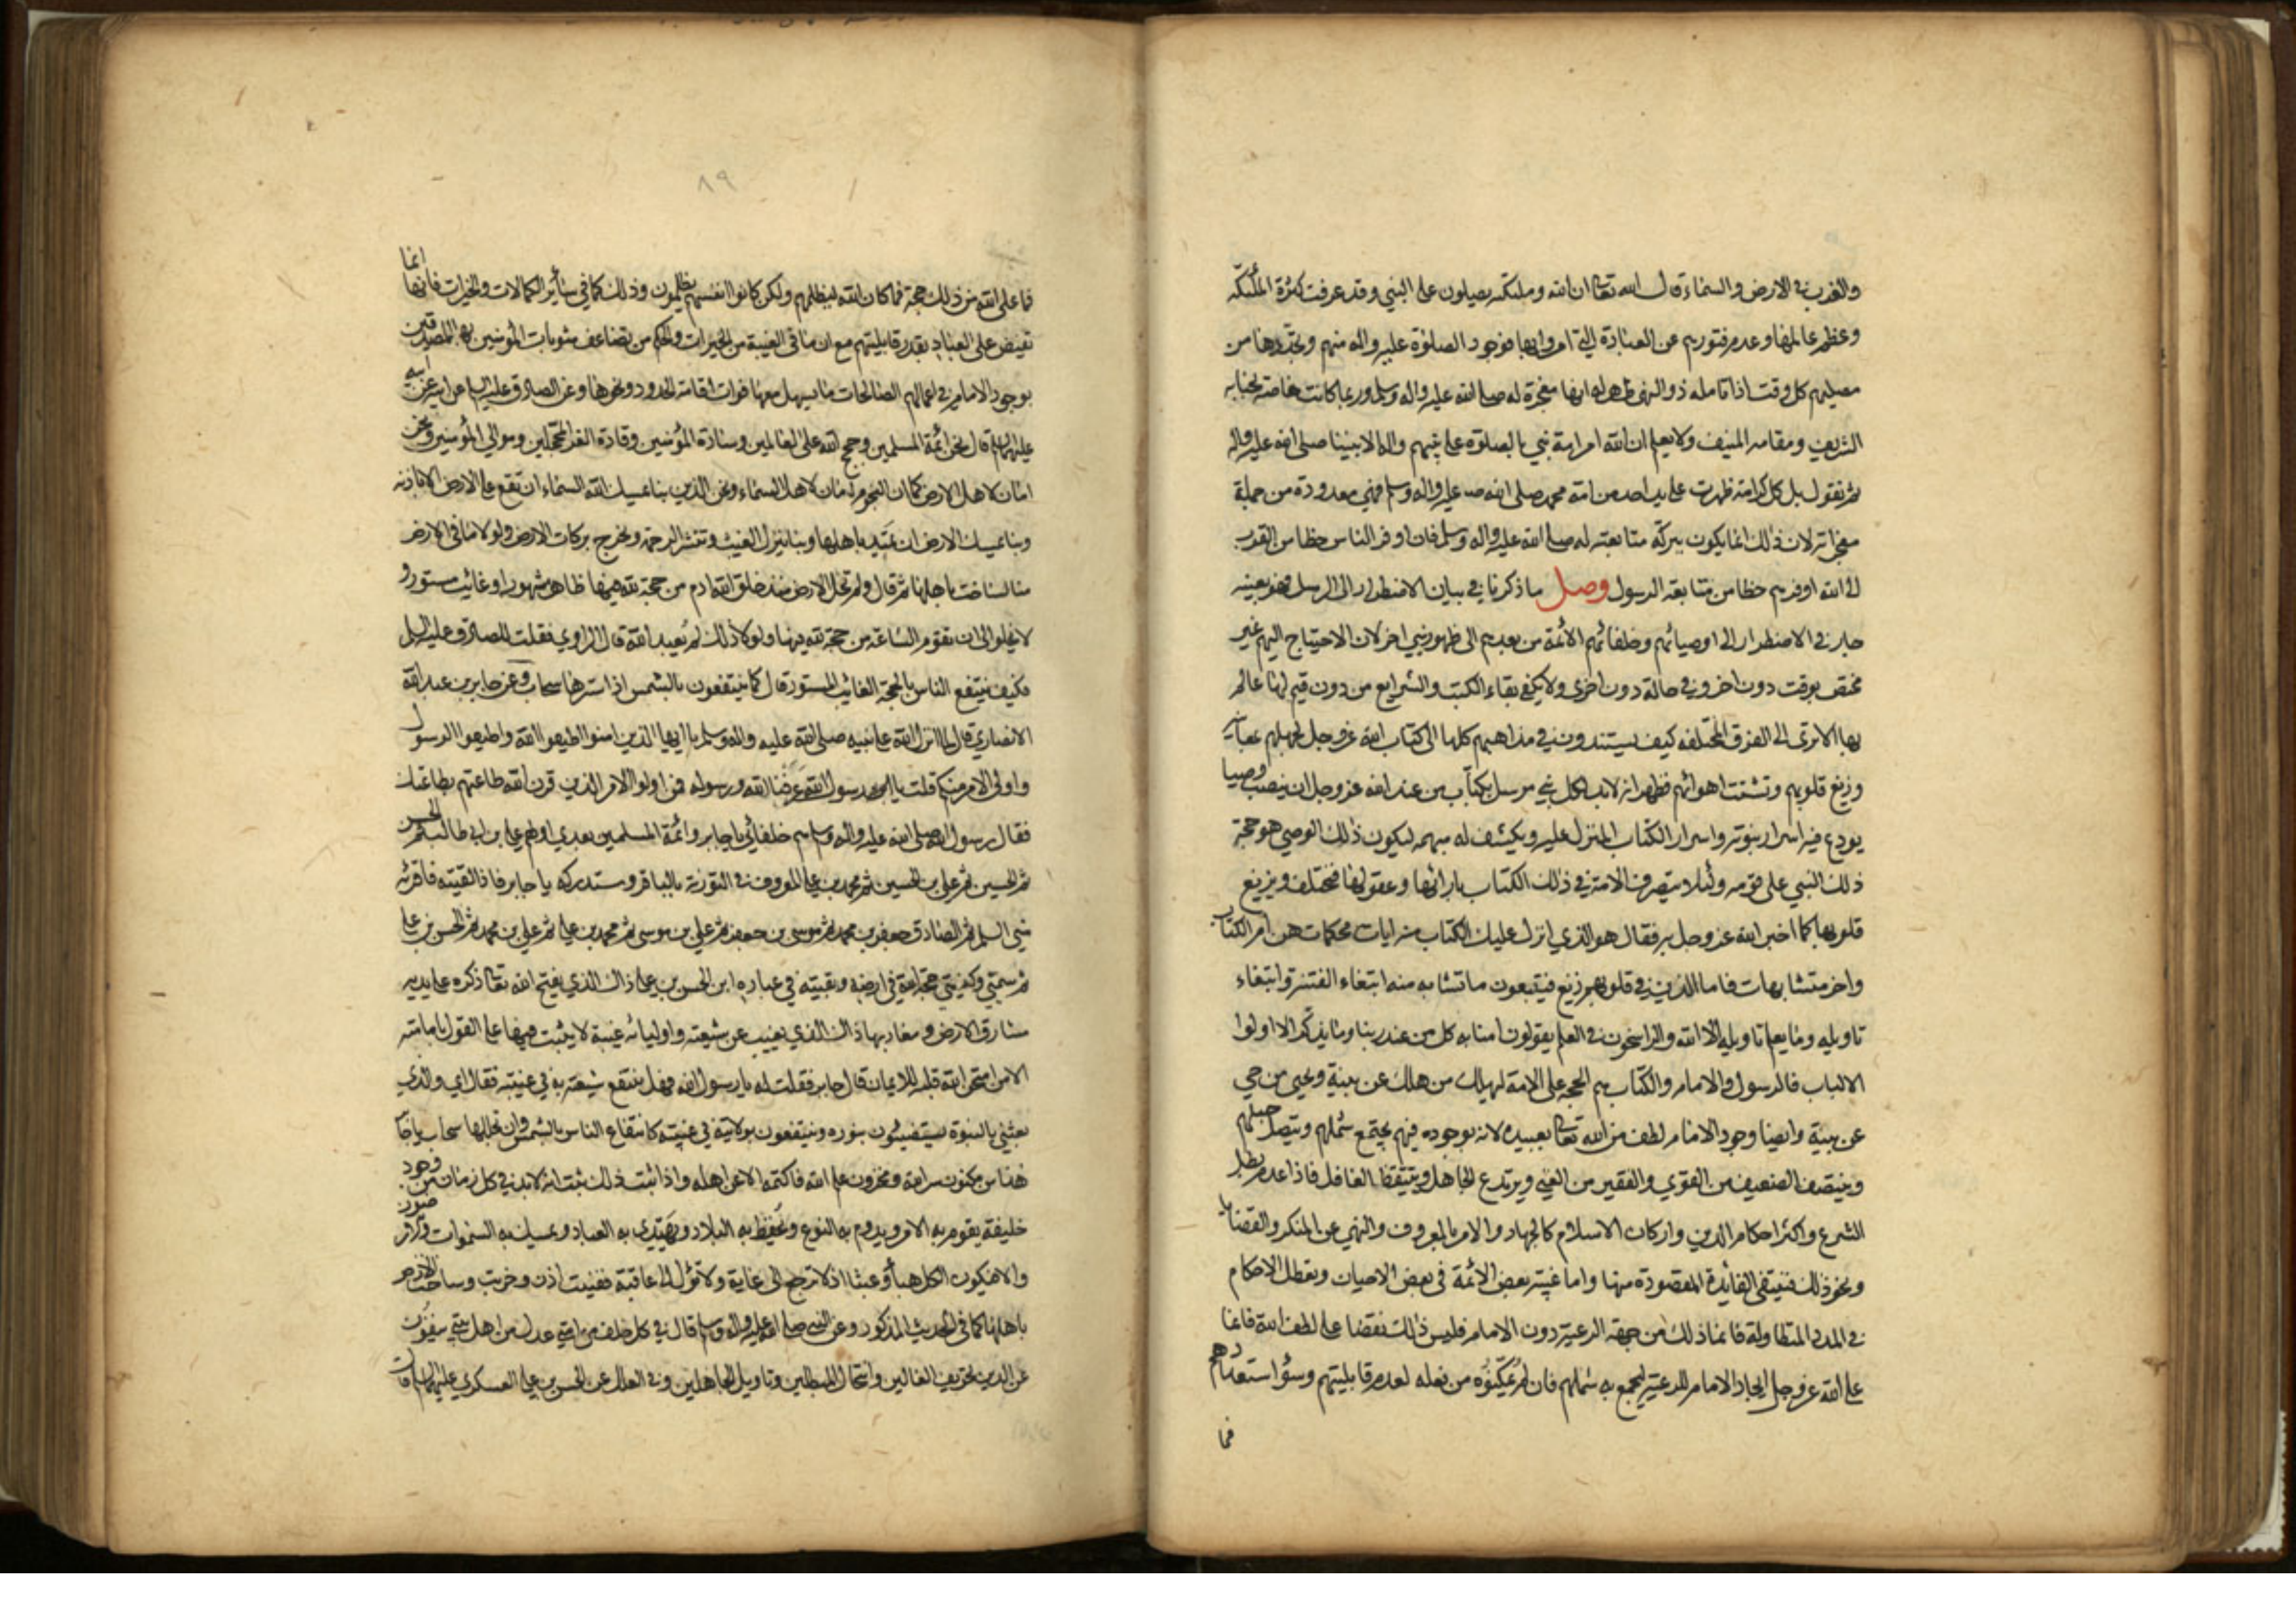 والغرب في الارض والسماء قال الله تعا ان الله وملئكته يصلون على النبي وقد عرفت كثرة الملئكة
وعظم عالمها وعدم فتورهم عن العبادة التي امروا بها فوجود الصلوة عليه واله منهم وتجددها من
مصليهم كل وقت اذا تامله ذو النهى ظهر له انها معجزة له صلى الله عليه واله وسلم وربما كانت خاصة لجنابه
الشريف ومقامه المنيف ولا يعلم ان الله امر امة نبي بالصلوة على نبيهم واله الا نبينا صلى الله عليه واله
ثم نقول بل كل كرامة ظهرت على يد احد من امة محمد صلى الله عليه واله وسلم فهي معدودة من جملة
معجزاته لان ذلك انما يكون ببركة متابعته له صلى الله عليه واله وسلم فان اوفر الناس حظا من القرب
الى الله اوفرهم حظا من متابعة الرسول وصل ما ذكرنا في بيان الاضطرار الى الرسل فهو بعينه
جار في الاضطرار الى اوصيائهم وخلفائهم الأئمة من بعدهم الى ظهور نبي اخر لان الاحتياج اليهم غير
مختص بوقت دون اخر وفي حالة دون اخرى ولا يكفي بقاء الكتب والشرايع من دون قيم لها عالم
بها الا ترى الى الفرق المختلفه كيف يستندون في مذاهبهم كلها الى كتاب الله عز وجل لجهلهم بمعانيه
وزيغ قلوبهم وتشتت اهوائهم فظهر انه لابد لكل نبي مرسل بكتاب من عند الله عز وجل ان ينصب وصيا
يودع فيه اسرار نبوته واسرار الكتاب المنزل عليه ويكشف له مبهمه ليكون ذلك الوصي هو حجة
ذلك النبي على قومه ولئلا يتصرف الامة في ذلك الكتاب بارائها وعقولها فتختلف ويزيغ
قلوبها كما اخبر الله عز وجل به فقال هو الذي انزل عليك الكتاب منه ايات محكمات هن ام الكتاب
واخر متشابهات فاما الذين في قلوبهم زيغ فيتبعون ما تشابه منه ابتغاء الفتنة وابتغاء
تاويله وما يعلم تاويله الا الله والراسخون في العلم يقولون امنا به كل من عند ربنا وما يذكر الا اولوا
الالباب فالرسول والامام والكتاب هم الحجة على الامة ليهلك من هلك عن بينة ويحيى من حي
عن بينة وايضا وجود الامام لطف من الله تعا بعبيده لانه بوجوده فيهم يجتمع شملهم ويتصل حبلهم
وينتصف الضعيف من القوي والفقير من الغني ويرتدع الجاهل ويتيقظ الغافل فاذا عدم بطل
الشرع واكثر احكام الدين واركان الاسلام كالجهاد والامر بالمعروف والنهي عن المنكر والقضايا
ونحو ذلك فينتفي الفائدة المقصودة منها واما غيبة بعض الأئمة في بعض الاحيان وتعطل الاحكام
في المدد المتطاولة فانما ذلك من جهة الرعية دون الامام فليس ذلك نقضا على لطف الله فانما
على الله عز وجل ايجاد الامام للرعية ليجمع به شملهم فان لم يمكنوه من فعله لعدم قابليتهم وسوء استعدادهم
فما
٨٩
فما على الله من ذلك حجة فما كان الله ليظلمهم ولكن كانوا انفسهم يظلمون وذلك كما في سائر الكمالات والخيرات فانها انما
تفيض على العباد بقدر قابليتهم مع ان ما في الغيبة من الخيرات والحكم من تضاعف مثوبات المؤمنين بها المصدقين
بوجود الامام في اعمالهم الصالحات ما يسهل معها فوات اقامة الحدود ونحوها وعن الصادق عليه السلم عن ابيه عن ابيه
عليهم السلم قال نحن ائمة المسلمين وحجج الله على العالمين وسادة المؤمنين وقادة الغر المحجلين وموالي المؤمنين ونحن
امان لاهل الارض كما ان النجوم امان لاهل السماء ونحن الذين بنا يمسك الله السماء ان تقع على الارض الا باذنه
وبنا يمسك الارض ان تميد باهلها وبنا ينزل الغيث وتنشر الرحمة ويخرج بركات الارض ولولا ما في الارض
منا لساخت باهلها ثم قال ولم تخل الارض منذ خلق الله ادم من حجة لله فيها ظاهر مشهور او غائب مستور و
لا يخلو الى ان تقوم الساعة من حجة لله فيها ولولا ذلك لم يعبد الله قال الراوي فقلت للصادق عليه السلم
فكيف ينتفع الناس بالحجة الغائب المستور قال كما ينتفعون بالشمس اذا سترها سحاب وعن جابر بن عبد الله
الانصاري قال لما انزل الله على نبيه صلى الله عليه واله وسلم يا ايها الذين امنوا اطيعوا الله واطيعوا الرسول
واولي الامر منكم قلت يا رسول الله عرفنا الله ورسوله فمن اولوا الامر الذين قرن الله طاعتهم بطاعتك
فقال رسول الله صلى الله عليه واله وسلم هم خلفائي يا جابر وائمة المسلمين بعدي اولهم علي بن ابي طالب ثم الحسن
ثم الحسين ثم علي بن الحسين ثم محمد بن علي المعروف في التورية بالباقر وستدركه يا جابر فاذا لقيته فاقرئه
مني السلم ثم الصادق جعفر بن محمد ثم موسى بن جعفر ثم علي بن موسى ثم محمد بن علي ثم علي بن محمد ثم الحسن بن علي
ثم سميي وكنيي حجة الله في ارضه وبقيته في عباده ابن الحسن بن علي ذاك الذي يفتح الله تعا ذكره على يديه
مشارق الارض ومغاربها ذاك الذي يغيب عن شيعته واوليائه غيبة لا يثبت فيها على القول بامامته
الا من امتحن الله قلبه للايمان قال جابر فقلت له يا رسول الله فهل ينتفع شيعته به في غيبته فقال اي والذي
بعثني بالنبوة يستضيئون بنوره وينتفعون بولايته في غيبته كانتفاع الناس بالشمس وان تجللها سحاب يا جابر
هذا من مكنون سر الله ومخزون علم الله فاكتمه الا عن اهله واذا ثبت ذلك ثبت انه لابد في كل زمان من وجود
خليفة يقوم به الامر ويدوم به النوع ويحفظ به البلاد ويهتدي به العباد ويمسك به السموات والارض
والا فيكون الكل هباء وعبثا اذ لا ترجع الى غاية ولا تؤل الى عاقبة ففنيت اذن وخربت وساخت الارض
باهلها كما في الحديث المذكور وعن النبي صلى الله عليه واله وسلم قال في كل خلف من امتي عدل من اهل بيتي ينفون
عن الدين تحريف الغالين وانتحال المبطلين وتاويل الجاهلين وفي العلل عن الحسن بن علي العسكري عليهما السلم قال